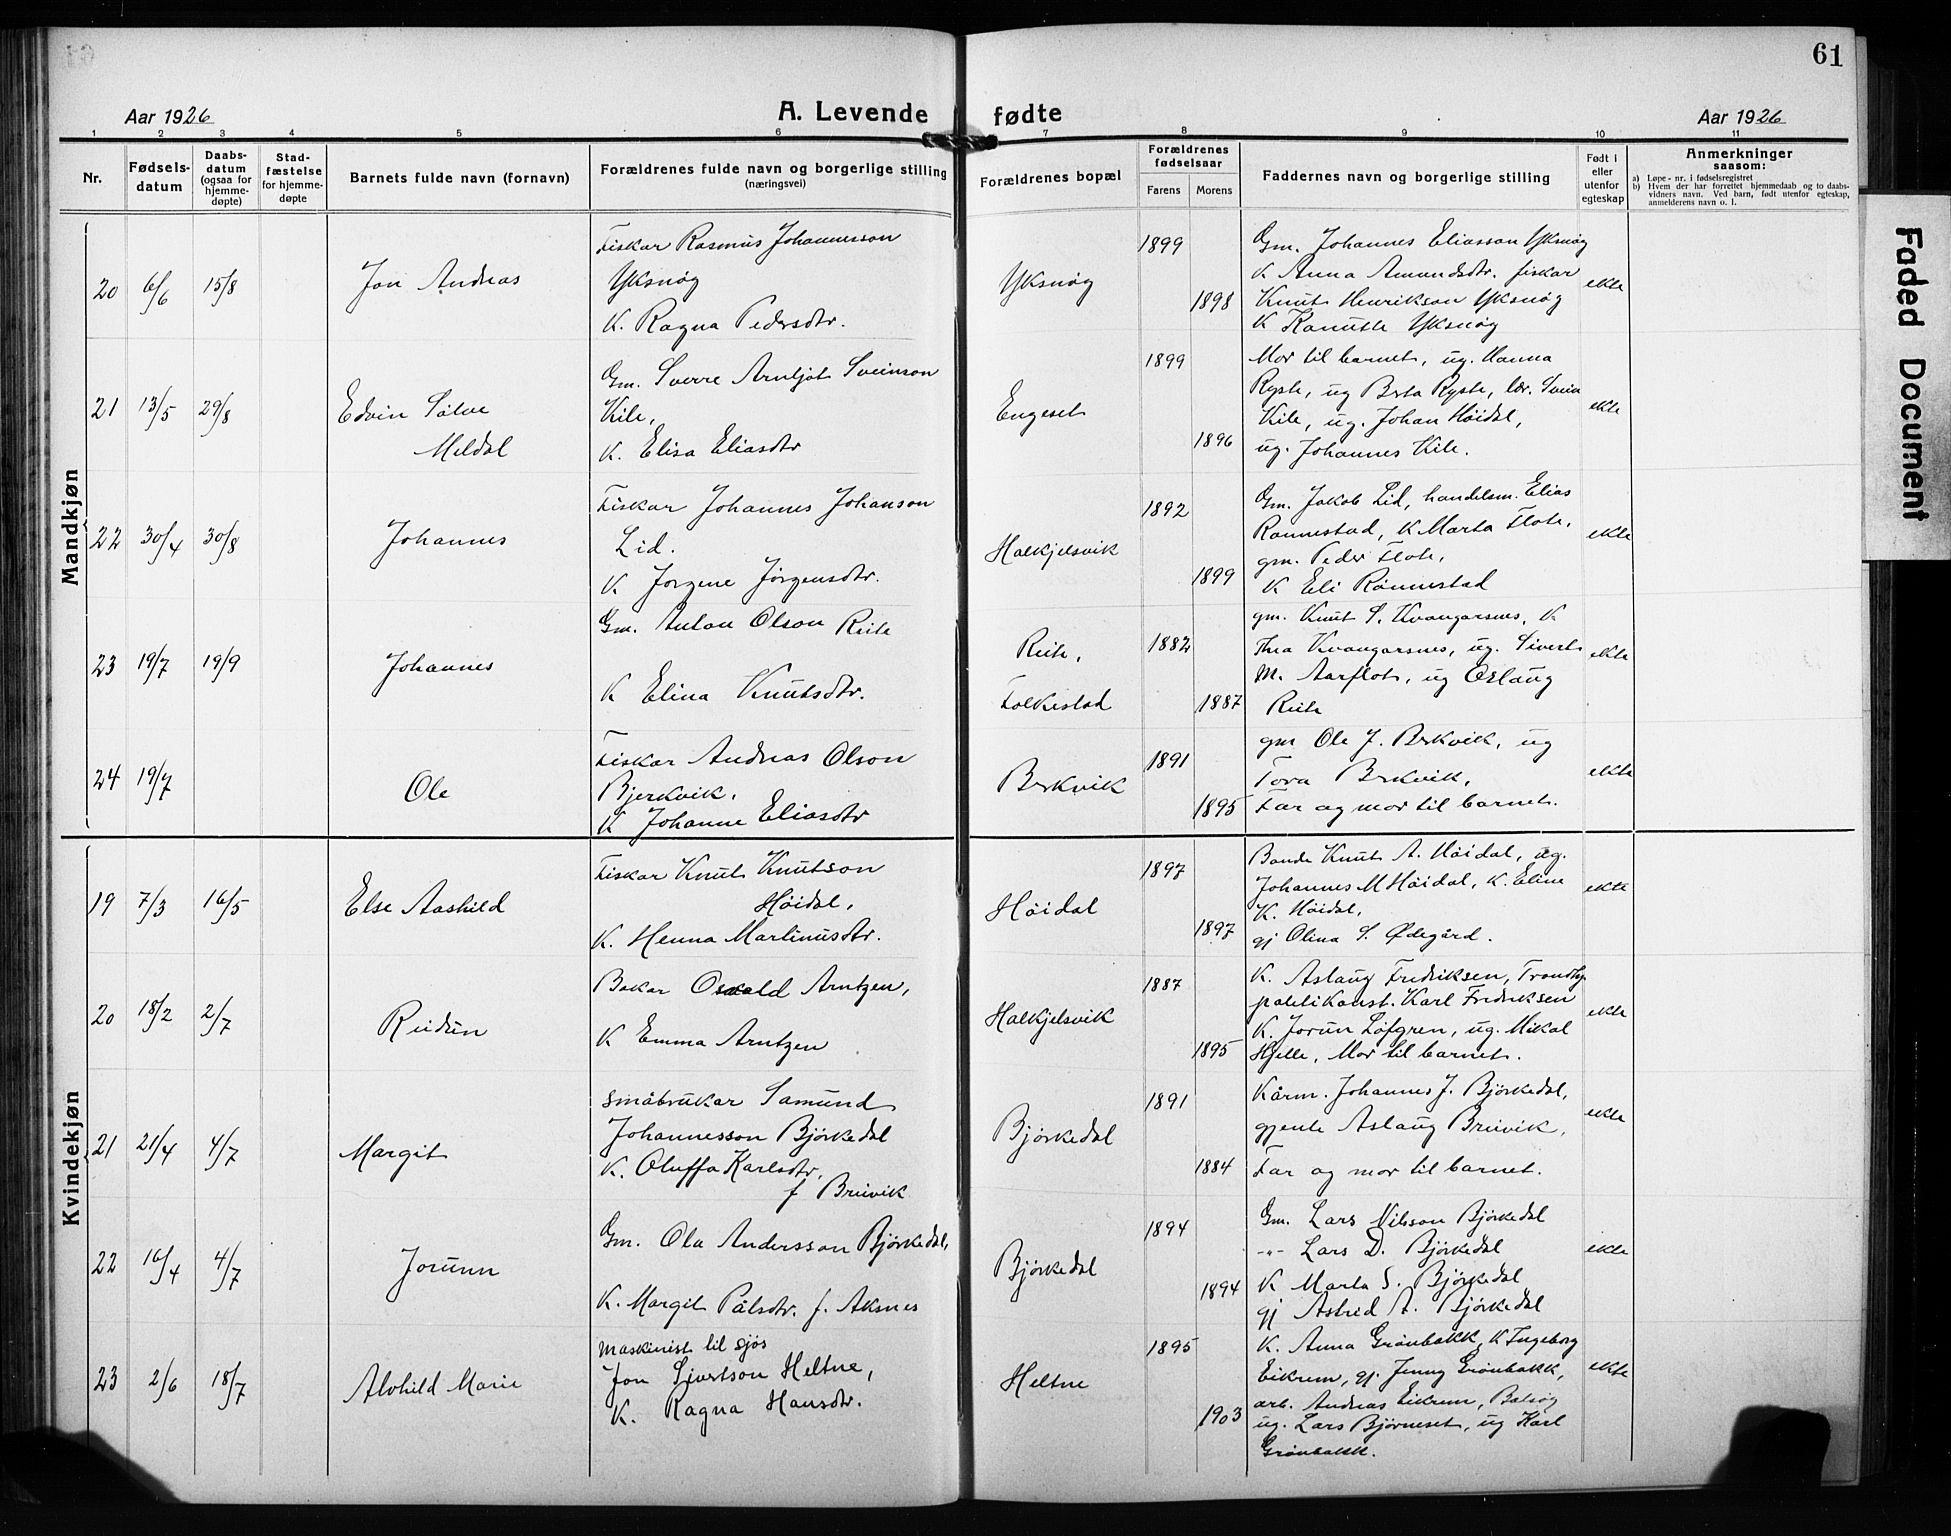 61
Aar 1926
A. Levende fødte
Aar 1926
1 2 3 4 5 6 7 8 9 10 11
Nr.
Fødsels-
datum
Daabs-
datum
(ogsaa for
hjemme-
døpte)
Stad-
fæstelse
for hjemme-
døpte
Barnets fulde navn (fornavn)
Forældrenes fulde navn og borgerlige stilling
(næringsvei)
Forældrenes bopæl
Forældrenes
fødselsaar
Farens Morens
Faddernes navn og borgerlige stilling
Født i
eller
utenfor
egteskap
Anmerkninger
saasom:
a) Løpe-nr. i fødselsregistret
b) Hvem der har forrettet hjemmedaab og to daabs-
vidners navn. Ved barn, født utenfor egteskap,
anmelderens navn o. l.
Faded Document
Mandkjøn
20 6/6 15/8
Jon Andreas
Fiskar Rasmus Johannesson
Yksnøy
K. Ragna Pedersdtr.
Yksnøy
1899
1898
Gm. Johannes Eliasson Yksnøy
K Anna Amundsdtr. fiskar
Knut Henrikson Yksnøy
K Kanutte Yksnøy
ekte
21 13/5 29/8
Edvin Sølve
Meldal
Gm. Sverre Arnljot Sveinson
Kile,
K. Elisa Eliasdtr
Engeset
1899
1896
Mor til barnet, ug. Hanna
Ryste, ug Berta Ryste, lær. Svein
Kile, ug. Johan Høidal,
ug. Johannes Kile.
ekte
22 30/4 30/8
Johannes
Fiskar Johannes Johanson
Lid.
K Jorgine Jørgensdtr.
Halkjelsvik
1892
1899
Gm. Jakob Lid, handelsm. Elias
Rønnestad, K Marta Flote,
gm. Peder Flote,
K Eli Rønnestad
ekte
23 19/7 19/9
Johannes
Gm. Anton Olson Reite
K Elina Knutsdtr.
Reite,
Folkestad
1882
1887
gm. Knut S. Kvangarsnes, K
Thea Kvangarsnes, ug. Sivert
M. Aarflot, ug Oslaug
Reite
ekte
24 19/7
Ole
Fiskar Andreas Olson
Bjerkvik.
K Johanne Eliasdtr
Berkvik
1891
1895
gm Ole J. Berkvik, ug
Tora Berkvik,
Far og mor til barnet.
ekte
Kvindekjøn
19 7/3 16/5
Else Aashild
Fiskar Knut Knutson
Høidal,
K. Henna Martinusdtr.
Høidal
1897
1897
Bonde Knut A. Høidal, ug.
Johannes M Høidal, K. Eline
K. Høidal,
gj Olina S. Ødegård.
ekte
20 18/2 2/7
Reidun
Bakar Osvald Arntzen,
K Emma Arntzen
Halkjelsvik
1887
1895
K. Aslaug Fredriksen, Trondhj.
politikonst. Karl Fredriksen
K. Jorun Løfgren, ug. Mikal
Hjelle, Mor til barnet.
ekte
21 21/4 4/7
Margit
Småbrukar Samund
Johannesson Bjørkedal
K. Oluffa Karlsdtr,
f Breivik
Bjørkedal
1891
1884
Kårm. Johannes J. Bjørkedal,
gjente Aslaug Breivik,
Far og mor til barnet.
ekte
22 16/4 4/7
Jorunn
Gm. Ola Andersson Bjørkedal,
K. Margit Pålsdtr. f. Aksnes
Bjørkedal
1894
1894
Gm. Lars Nilsson Bjørkedal
-"- Lars D. Bjørkedal
K Marta S. Bjørkedal
gj Astrid A. Bjørkedal
ekte
23 2/6 18/7
Alvhild Marie
Maskinist til sjøs
Jon Sivertson Heltne,
K. Ragna Hansdtr.
Heltne
1895
1903
K. Anna Grønbakk, K Ingeborg
Eikrem, gj. Jenny Grønbakk,
arb. Andreas Eikrem, Batsøy
ug. Lars Bjørneset, ug Karl
Grønbakk.
ekte